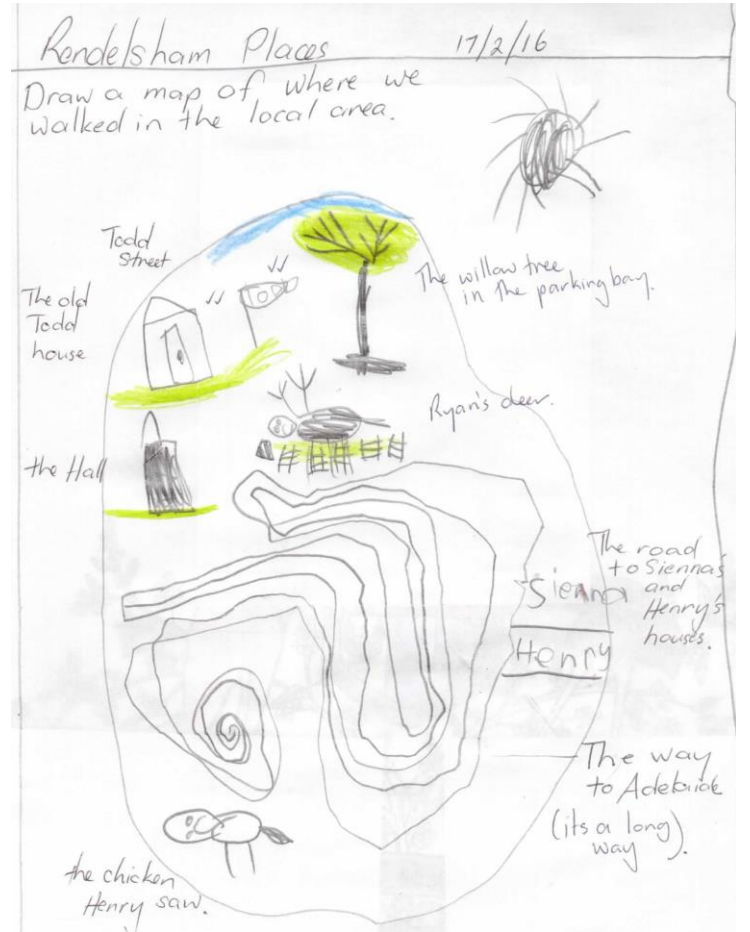 Rendelsham Places 17/2/16
Draw a map of where we
walked in the local area.
Todd
Street
The old
Todd
house
The willow tree
in the parking bay.
Ryan's deer.
the Hall
The road
to Sienna's
and
Henry's
houses.
Sienna
Henry
The way
to Adelaide
(its a long)
way).
the chicken
Henry saw.